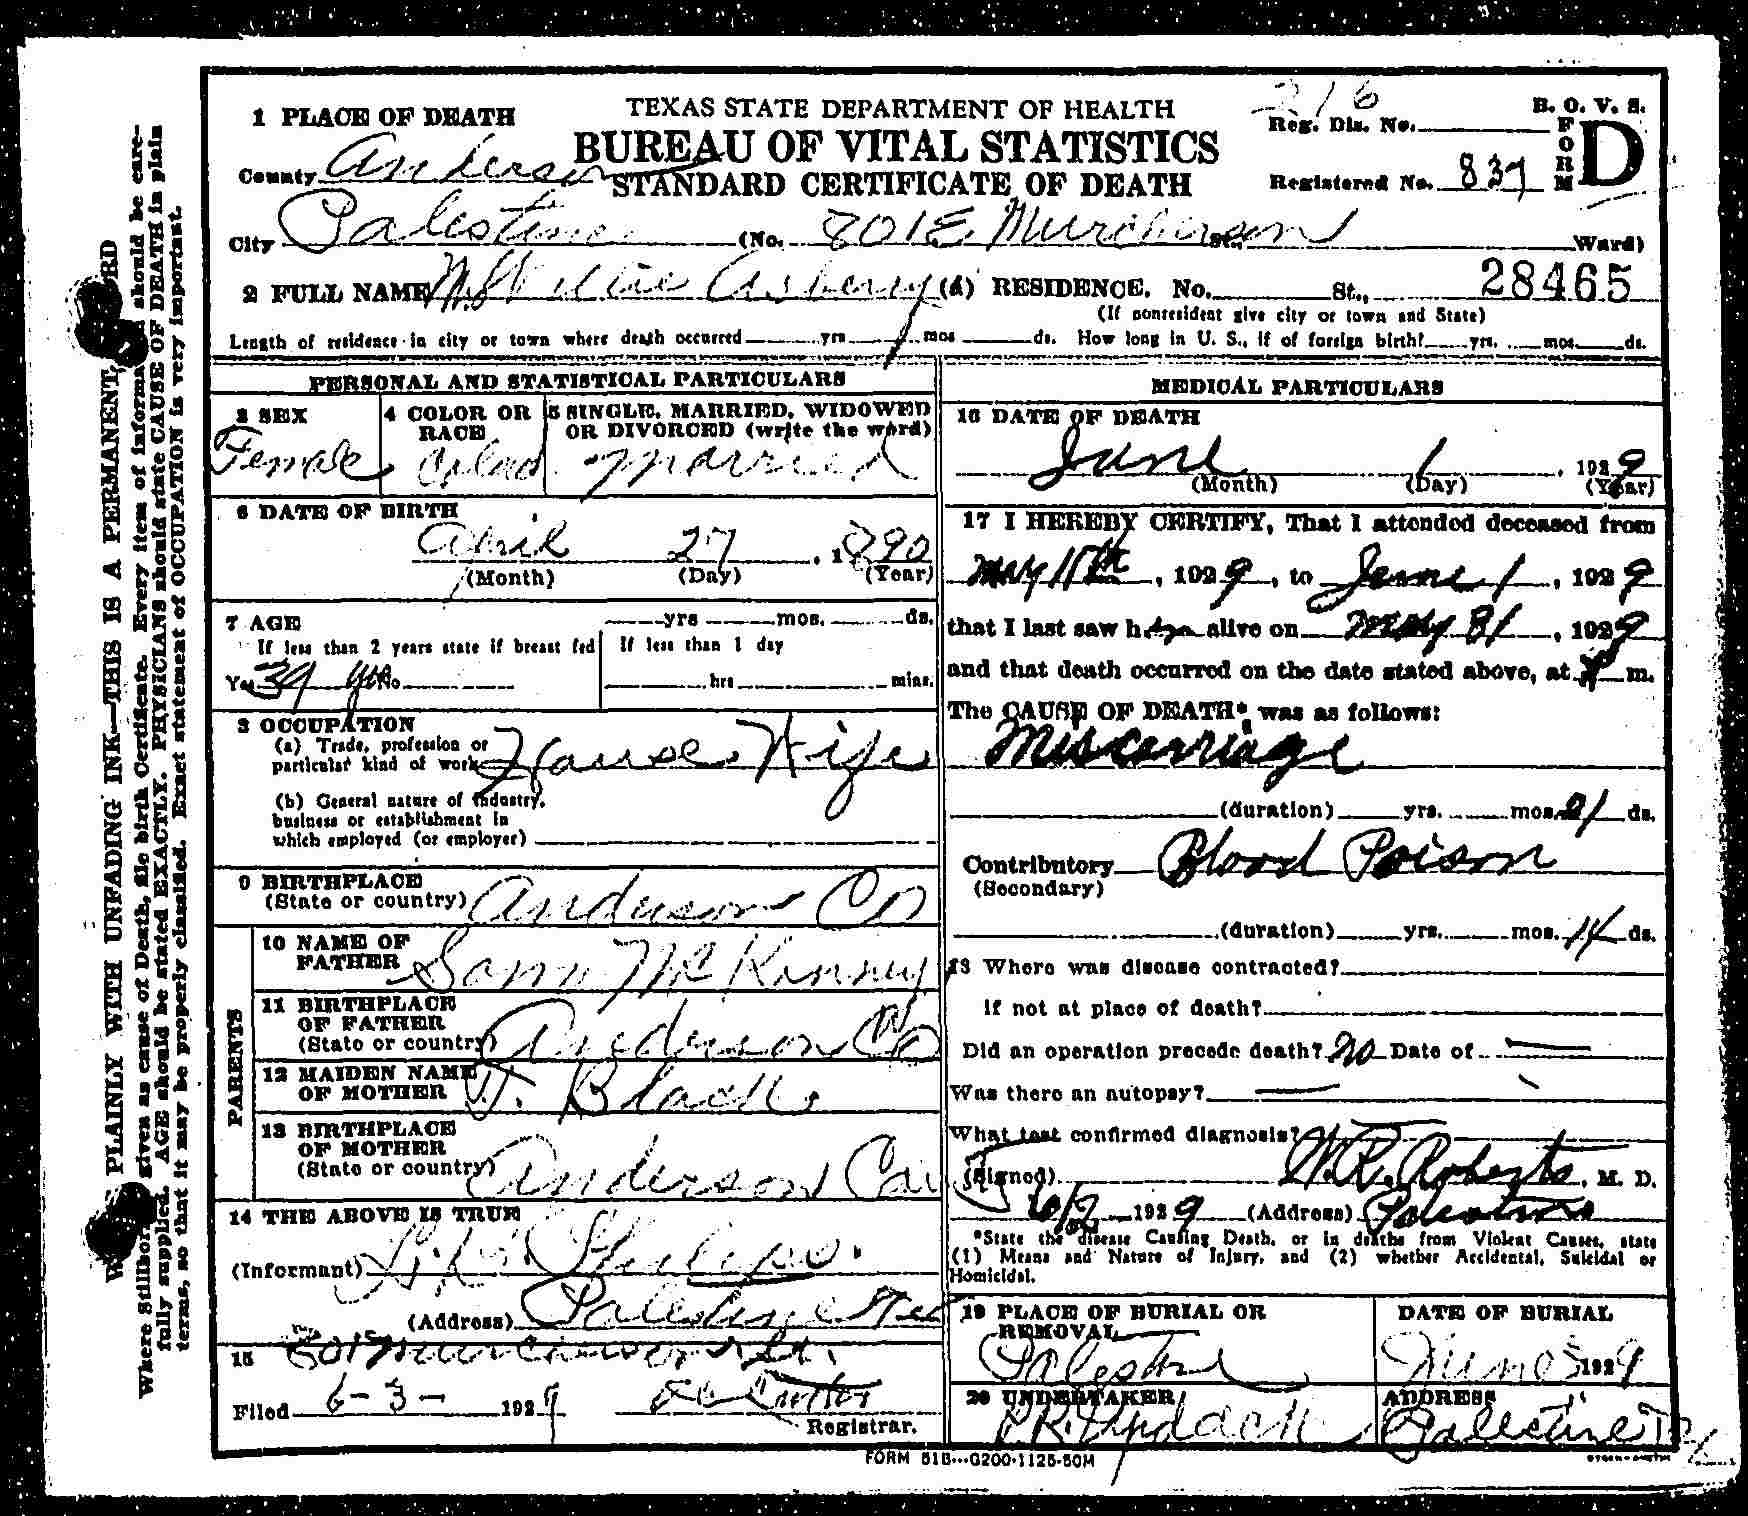 TEXAS STATE DEPARTMENT OF HEALTH
BUREAU OF VITAL STATISTICS
STANDARD CERTIFICATE OF DEATH
216
Reg. Dis. No.
B. O. V. S.
FORM D
Registered No. 837
1 PLACE OF DEATH
County Anderson
City Palestine (No. 801 E Murcherson St., Ward)
2 FULL NAME Willie Asberry (a) RESIDENCE. No. St., 28465
(If nonresident give city or town and State)
Length of residence in city or town where death occurred yrs mos ds. How long in U. S., if of foreign birth? yrs. mos. ds.
PERSONAL AND STATISTICAL PARTICULARS
3 SEX
Female
4 COLOR OR RACE
Colod
5 SINGLE, MARRIED, WIDOWED
OR DIVORCED (write the word)
Married
6 DATE OF BIRTH
April 27, 1890
(Month) (Day) (Year)
7 AGE yrs mos. ds.
If less than 2 years state if breast fed
If less than 1 day
Yes 39 yrs No
hrs mins.
8 OCCUPATION
(a) Trade, profession or
particular kind of work House Wife
(b) General nature of industry,
business or establishment in
which employed (or employer)
9 BIRTHPLACE
(State or country) Anderson Co
PARENTS
10 NAME OF
FATHER Sam McKinney
11 BIRTHPLACE
OF FATHER
(State or country) Anderson Co
12 MAIDEN NAME
OF MOTHER Black
13 BIRTHPLACE
OF MOTHER
(State or country) Anderson
14 THE ABOVE IS TRUE
(Informant)
(Address) Palestine Tex
801 Murcherson St.
15
Filed 6-3- 1929
Registrar.
MEDICAL PARTICULARS
16 DATE OF DEATH
June 1, 1929
(Month) (Day) (Year)
17 I HEREBY CERTIFY, That I attended deceased from
May 11th, 1929, to June 1, 1929
that I last saw her alive on May 31, 1929
and that death occurred on the date stated above, at m.
The CAUSE OF DEATH* was as follows:
Miscarriage
(duration) yrs. mos. 21 ds.
Contributory Blood Poison
(Secondary)
(duration) yrs. mos. 14 ds.
18 Where was disease contracted?
if not at place of death?
Did an operation precede death? no Date of —
Was there an autopsy? —
What test confirmed diagnosis?
(Signed) W.R. Roberts, M. D.
6/2 1929 (Address) Palestine
*State the disease Causing Death, or in deaths from Violent Causes, state
(1) Means and Nature of Injury, and (2) whether Accidental, Suicidal or
Homicidal.
19 PLACE OF BURIAL OR
REMOVAL
Palestine
DATE OF BURIAL
June 3 1929
20 UNDERTAKER
ADDRESS
Palestine
FORM 51B---G200-1125-50M
PLAINLY WITH UNFADING INK—THIS IS A PERMANENT
given as cause of Death, file birth Certificate. Every item of should be care-
fully supplied. AGE should be stated EXACTLY. PHYSICIANS should state CAUSE OF DEATH in plain
terms, so that it may be properly classified. Exact statement of OCCUPATION is very important.